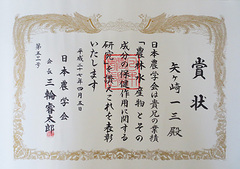 賞状
矢ヶ崎一三殿
日本農学会は貴兄の業績
「農林水産物とその
成分の保健作用に関する
研究」に対しこれを表彰
いたします
平成二十七年四月五日
日本農学会
会長 三輪睿太郎